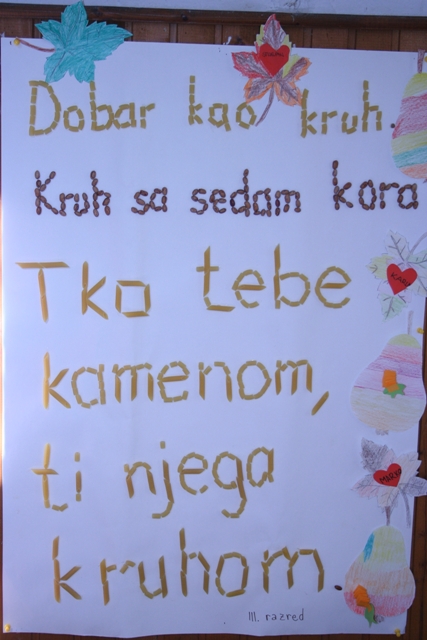 Dobar kao kruh.
Kruh sa sedam kora
Tko tebe
kamenom,
ti njega
kruhom.
III. razred